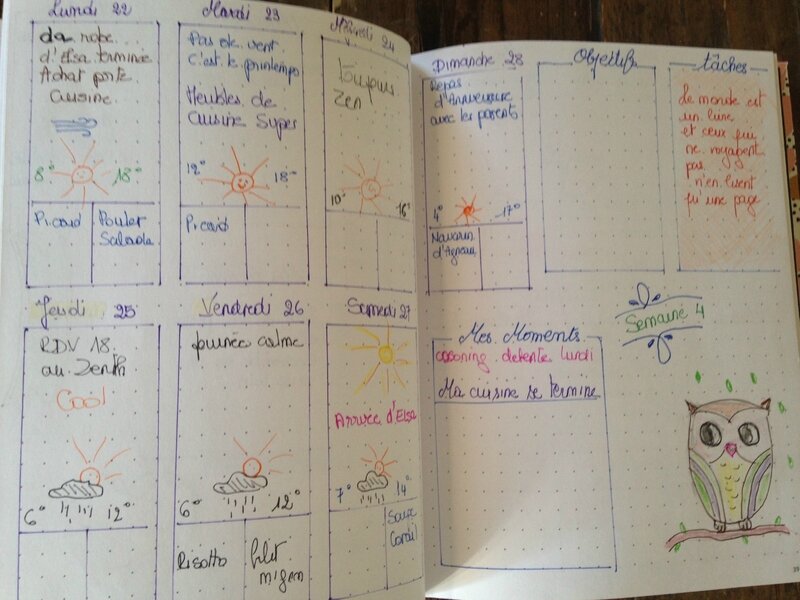 Lundi 22
La robe
d'Elsa terminée
Achat porte
Cuisine
8° 18°
Picard
Poulet
Salade
Mardi 23
Pas de vent
c'est le printemps
Meubles de
Cuisine Super
12° 18°
Picard
Mercredi 24
Toujours
Zen
10° 16°
Jeudi 25
RDV 18
au Zenith
Cool
6° 12°
Vendredi 26
journée calme
6° 12°
Risotto
filet
mignon
Samedi 27
Arrivée d'Elsa
7° 14°
Dimanche 28
Repas
d'Anniversaire
avec les parents
4° 17°
Navarin
d'Agneau
Objectifs
tâches
Le monde est
un livre
et ceux qui
ne voyagent
pas
n'en lisent
qu'une page
Semaine 4
Mes Moments
cocooning detente lundi
Ma cuisine se termine